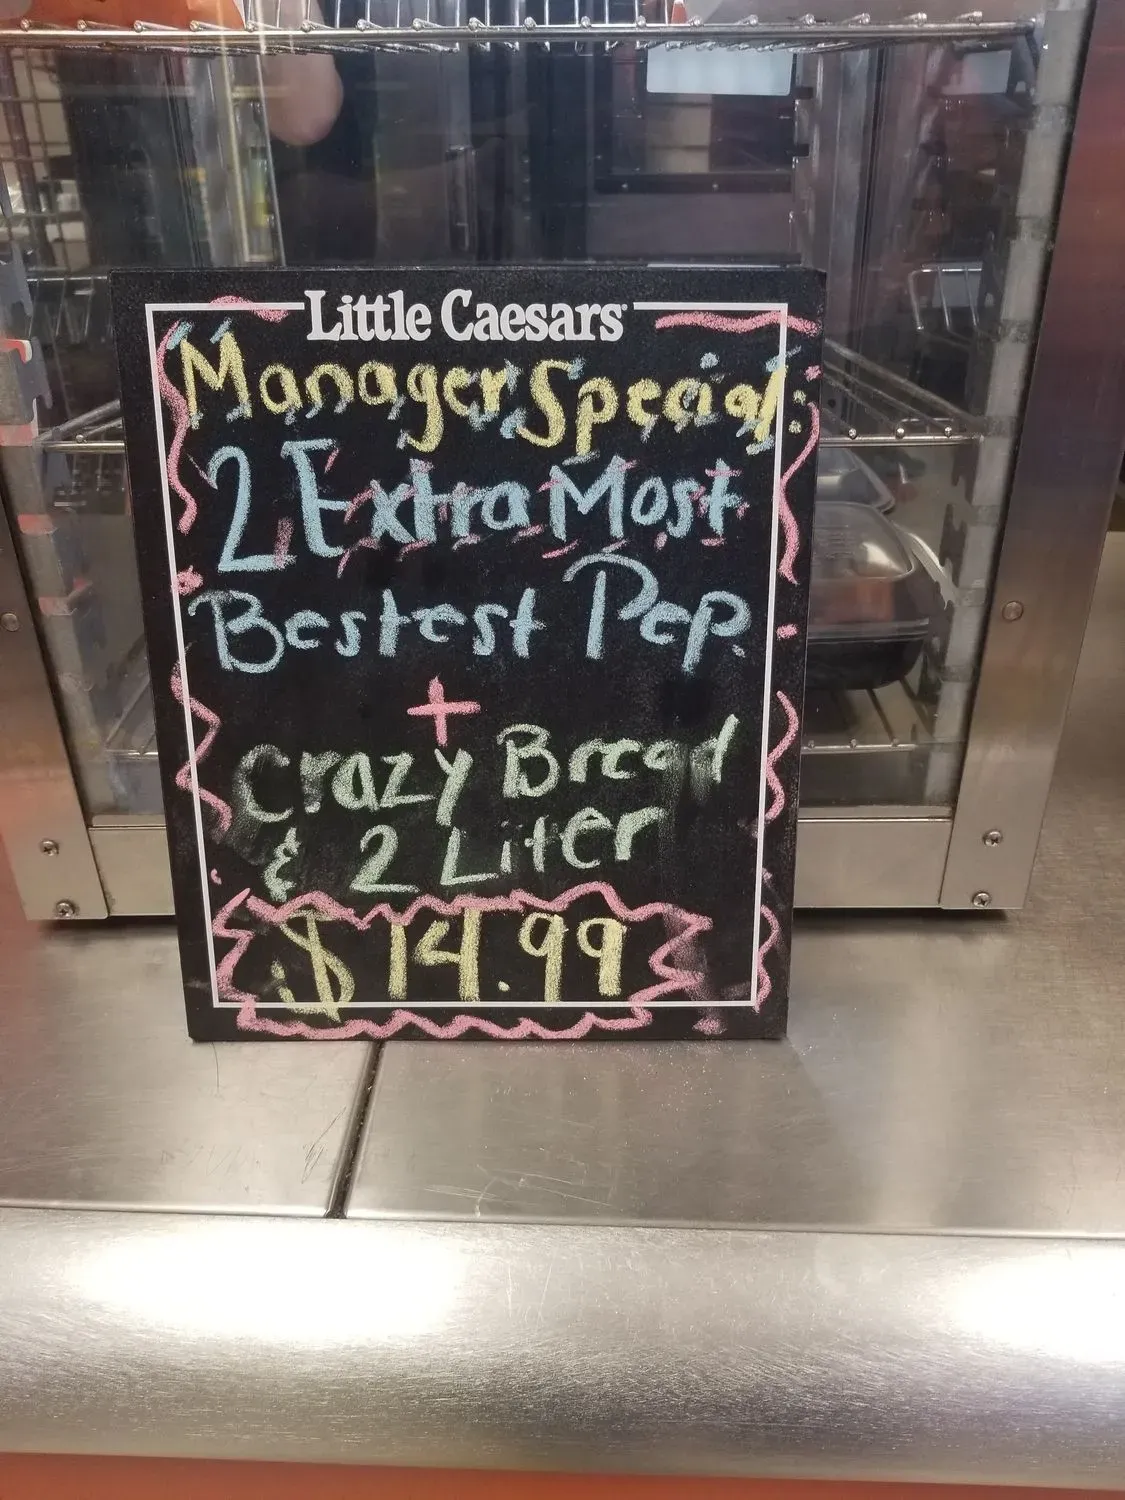 Little Caesars
Manager Special:
2 Extra Most
Bestest Pep.
+
Crazy Bread
& 2 Liter
$14.99